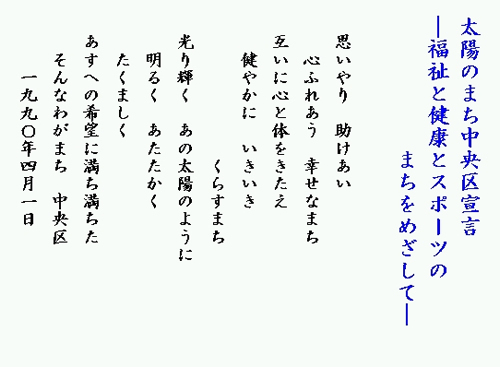 太陽のまち中央区宣言
―福祉と健康とスポーツの
まちをめざして―
思いやり　助けあい
心ふれあう　幸せなまち
互いに心と体をきたえ
健やかに　いきいき
くらすまち
光り輝く　あの太陽のように
明るく　あたたかく
たくましく
あすへの希望に満ち満ちた
そんなわがまち　中央区
一九九〇年四月一日